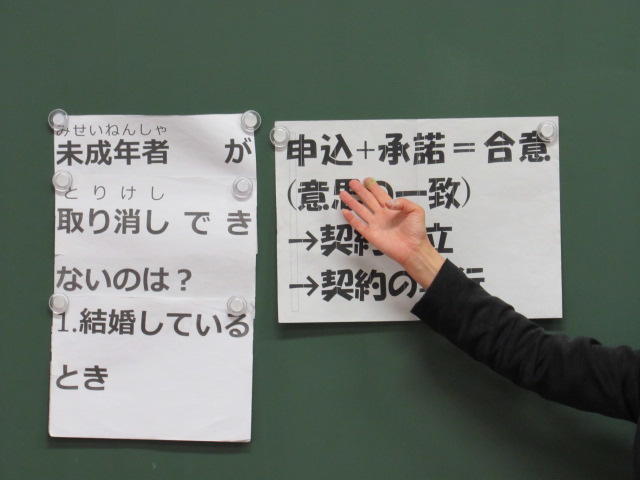 みせいねんしゃ
未成年者 が
とりけし
取り消し で き
ないのは？
1.結婚している
とき
申込＋承諾＝合意
(意思の一致)
→契約 立
→契約の 行